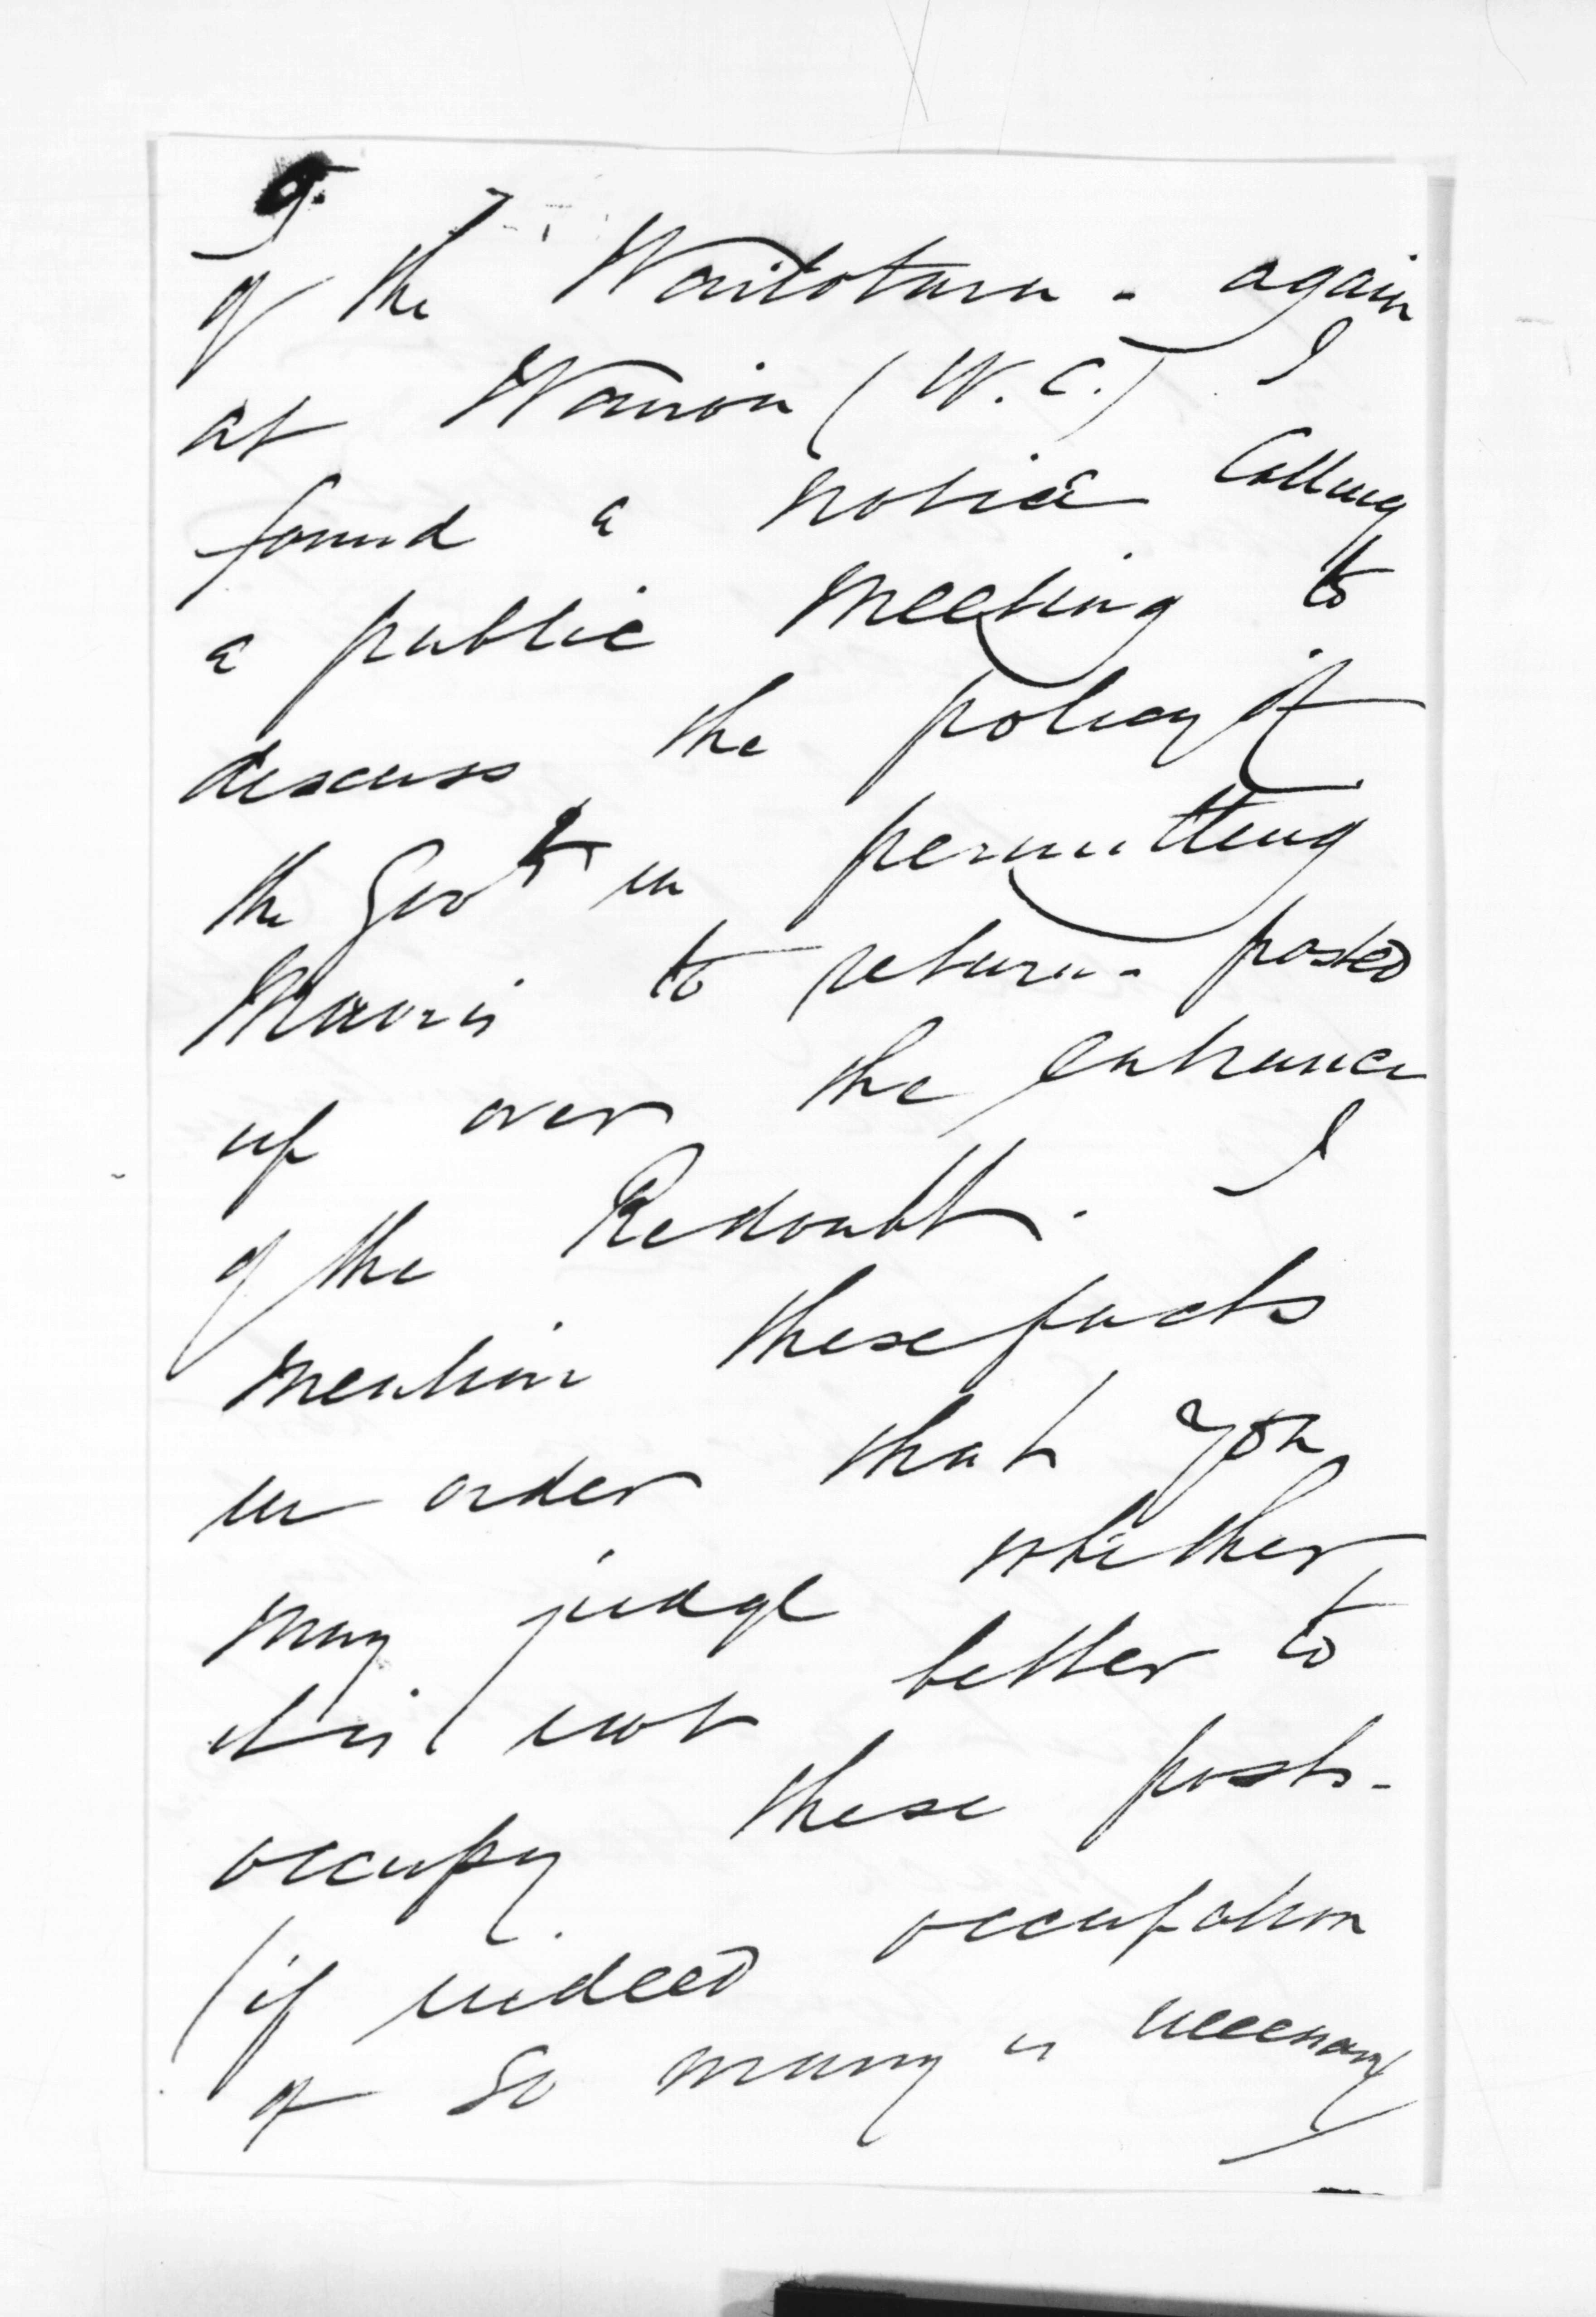 9.
of the Waitotara - again
at Wairoa (W.C.) I
found a notice Calling
a public meeting to
discuss the policy of
the Govt in permitting
Maoris to return - posted
up over the entrance
of the Redoubt. I
mention these facts
in order that you
may judge whether
it is not better to
occupy these posts -
(if indeed occupation
of so many is necessary)